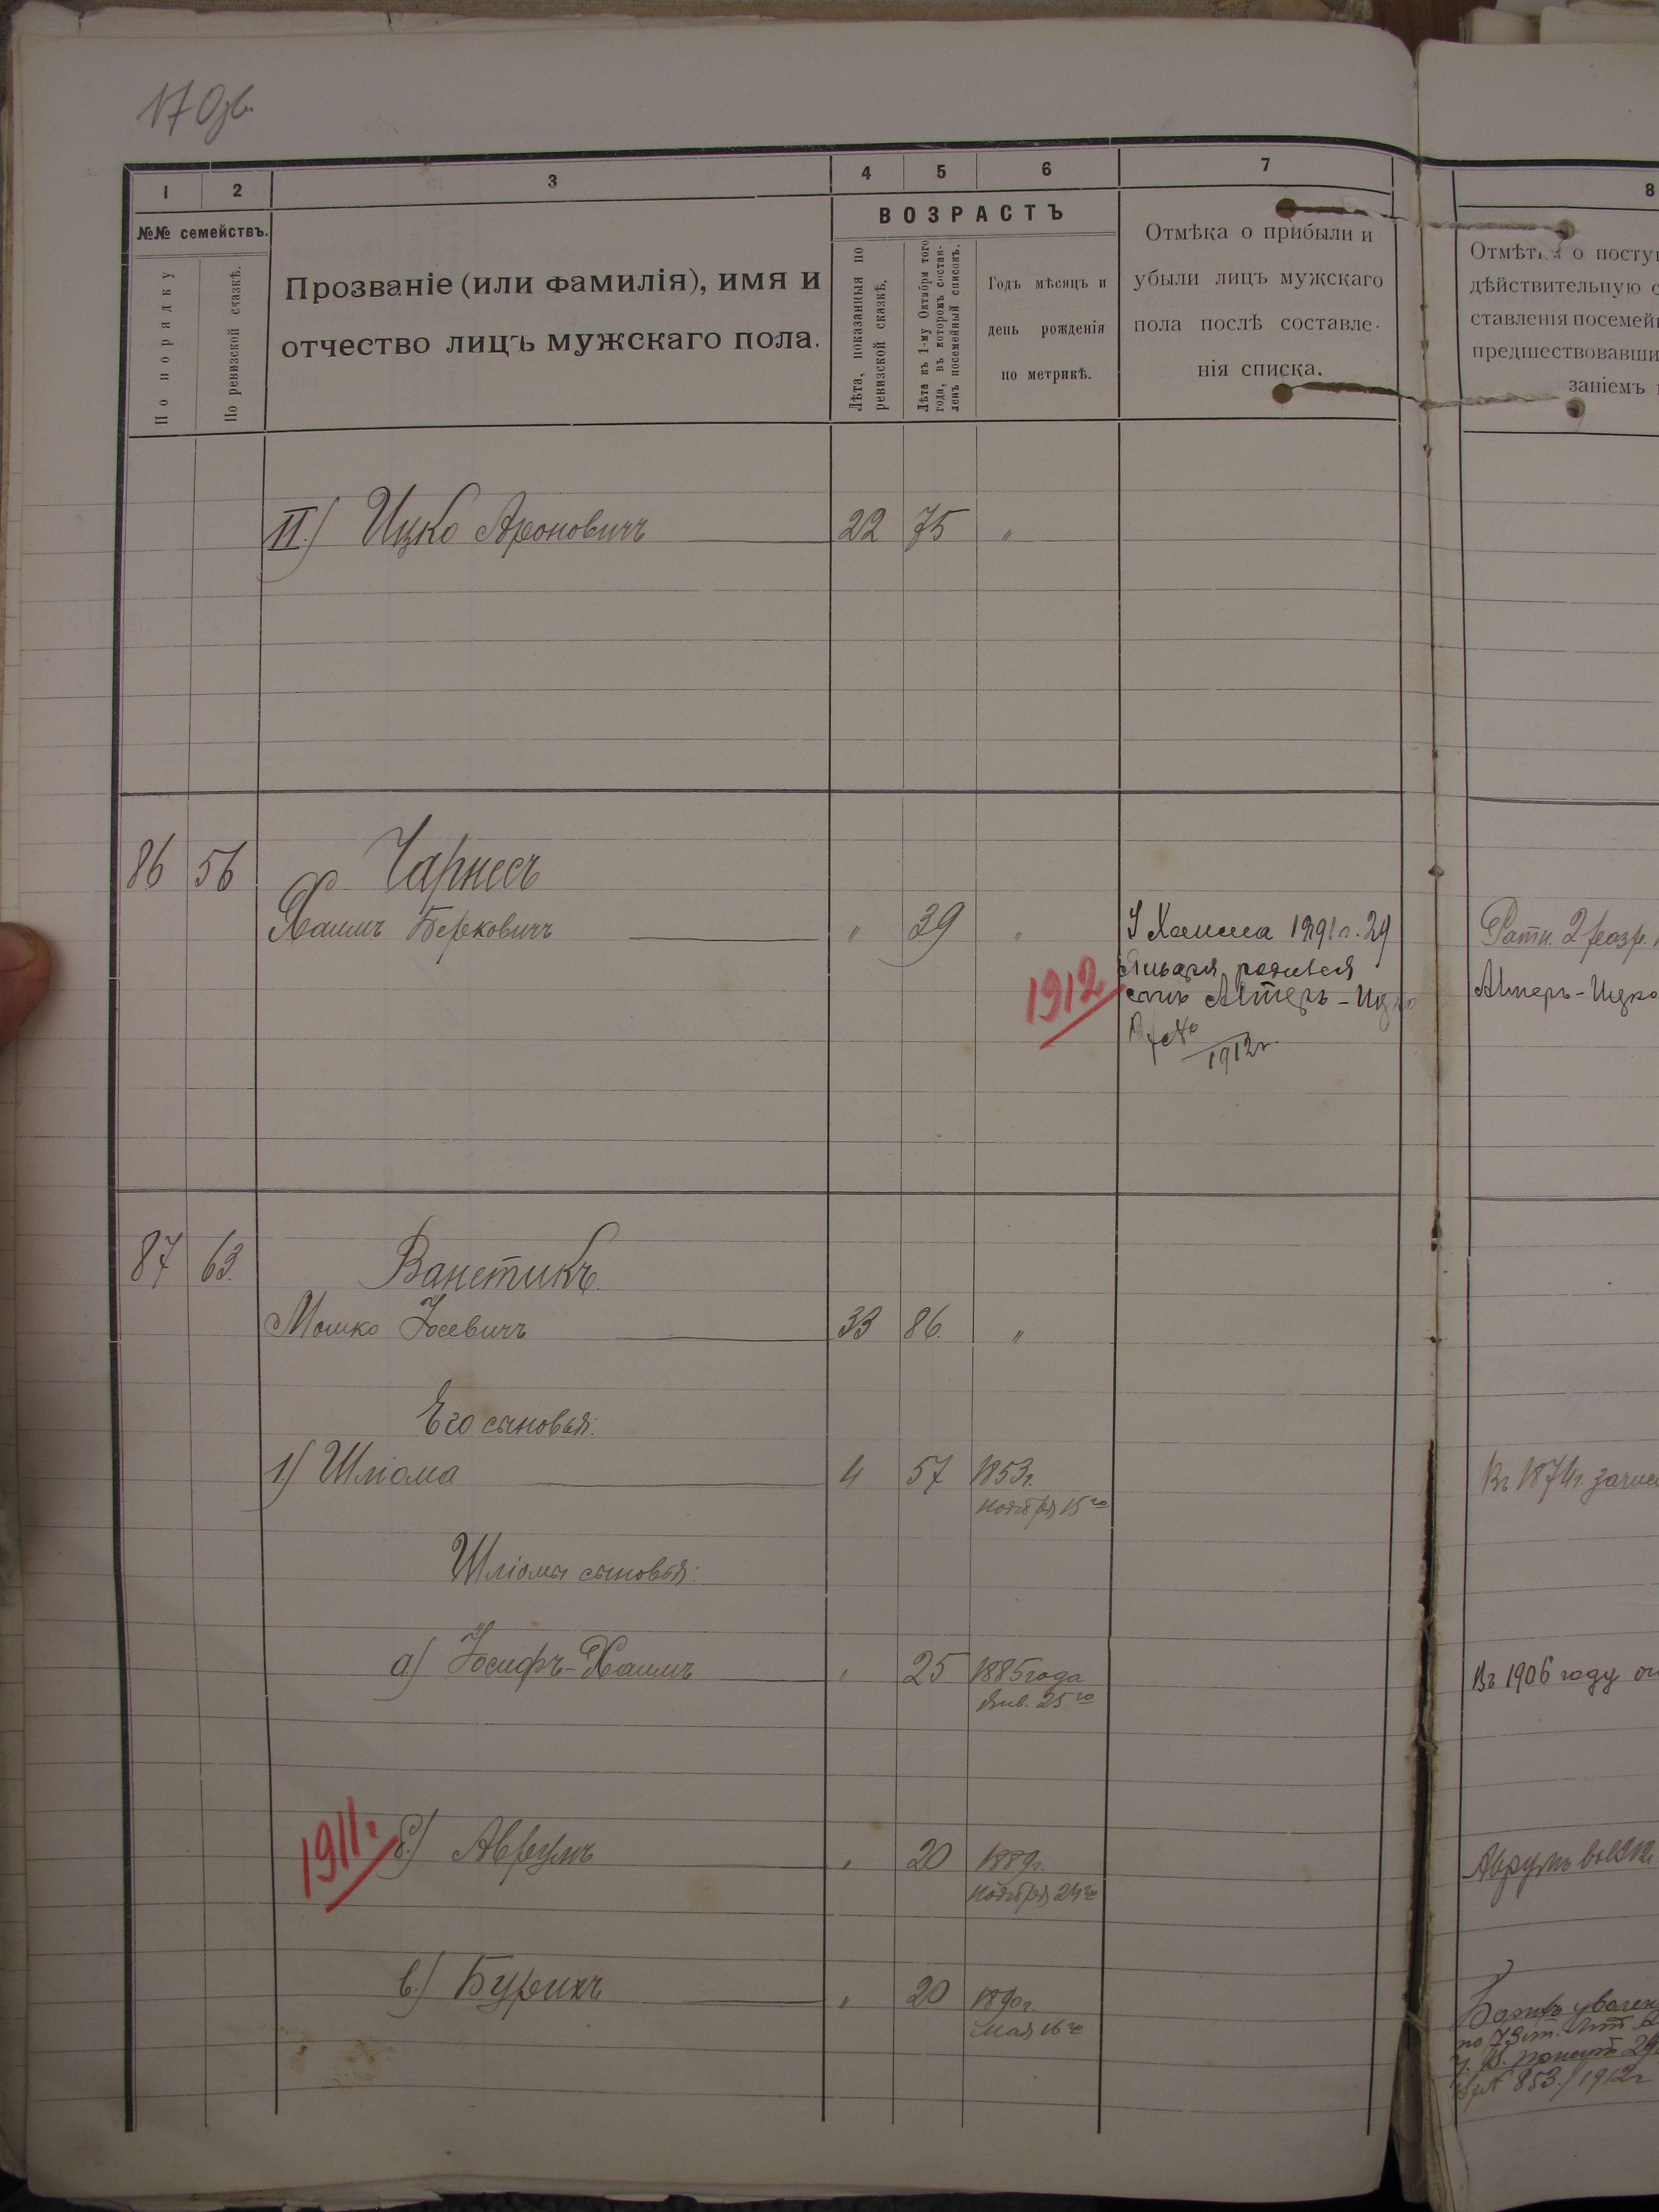 170об.
1 2 3 4 5 6 7
№№ семействъ.
По порядку
По ревизской сказкѣ.
Прозваніе (или фамилія), имя и
отчество лицъ мужскаго пола.
ВОЗРАСТЪ
Лѣта, показанныя по
ревизской сказкѣ.
Лѣта къ 1-му Октября того
года, въ которомъ состав-
ленъ посемейный списокъ.
Годъ мѣсяцъ и
день рожденія
по метрикѣ.
Отмѣка о прибыли и
убыли лицъ мужскаго
пола послѣ составле-
нія списка.
8
Отмѣт о посту
дѣйствительную с
ставленія посемей
предшествовавши
заніемъ
II.) Ицко Ароновичъ 22 75 "
86 56 Чарнесъ
Хаимъ Берковичъ " 39 "
У Хаима 1891 г. 29
Января родился
сынъ Алтеръ-Ицко
№
1912 г.
1912
Ратн. 2 разр.
Алтеръ-Ицко
87 63. Ванетикъ.
Мошко Іосевичъ 33 86. "
Его сыновья:
1.) Шліома 4 57 1853 г.
ноября 15го
Въ 1874 г. зачис
Шліомы сыновья:
а) Іосифъ-Хаимъ " 25 1885 года
Янв. 25го
Въ 1906 году
1911 г.
б.) Аврумъ " 20 1889 г.
ноября 24го
Аврумъ
в.) Бурихъ " 20 1890 г.
мая 16го
853 / 1912 г